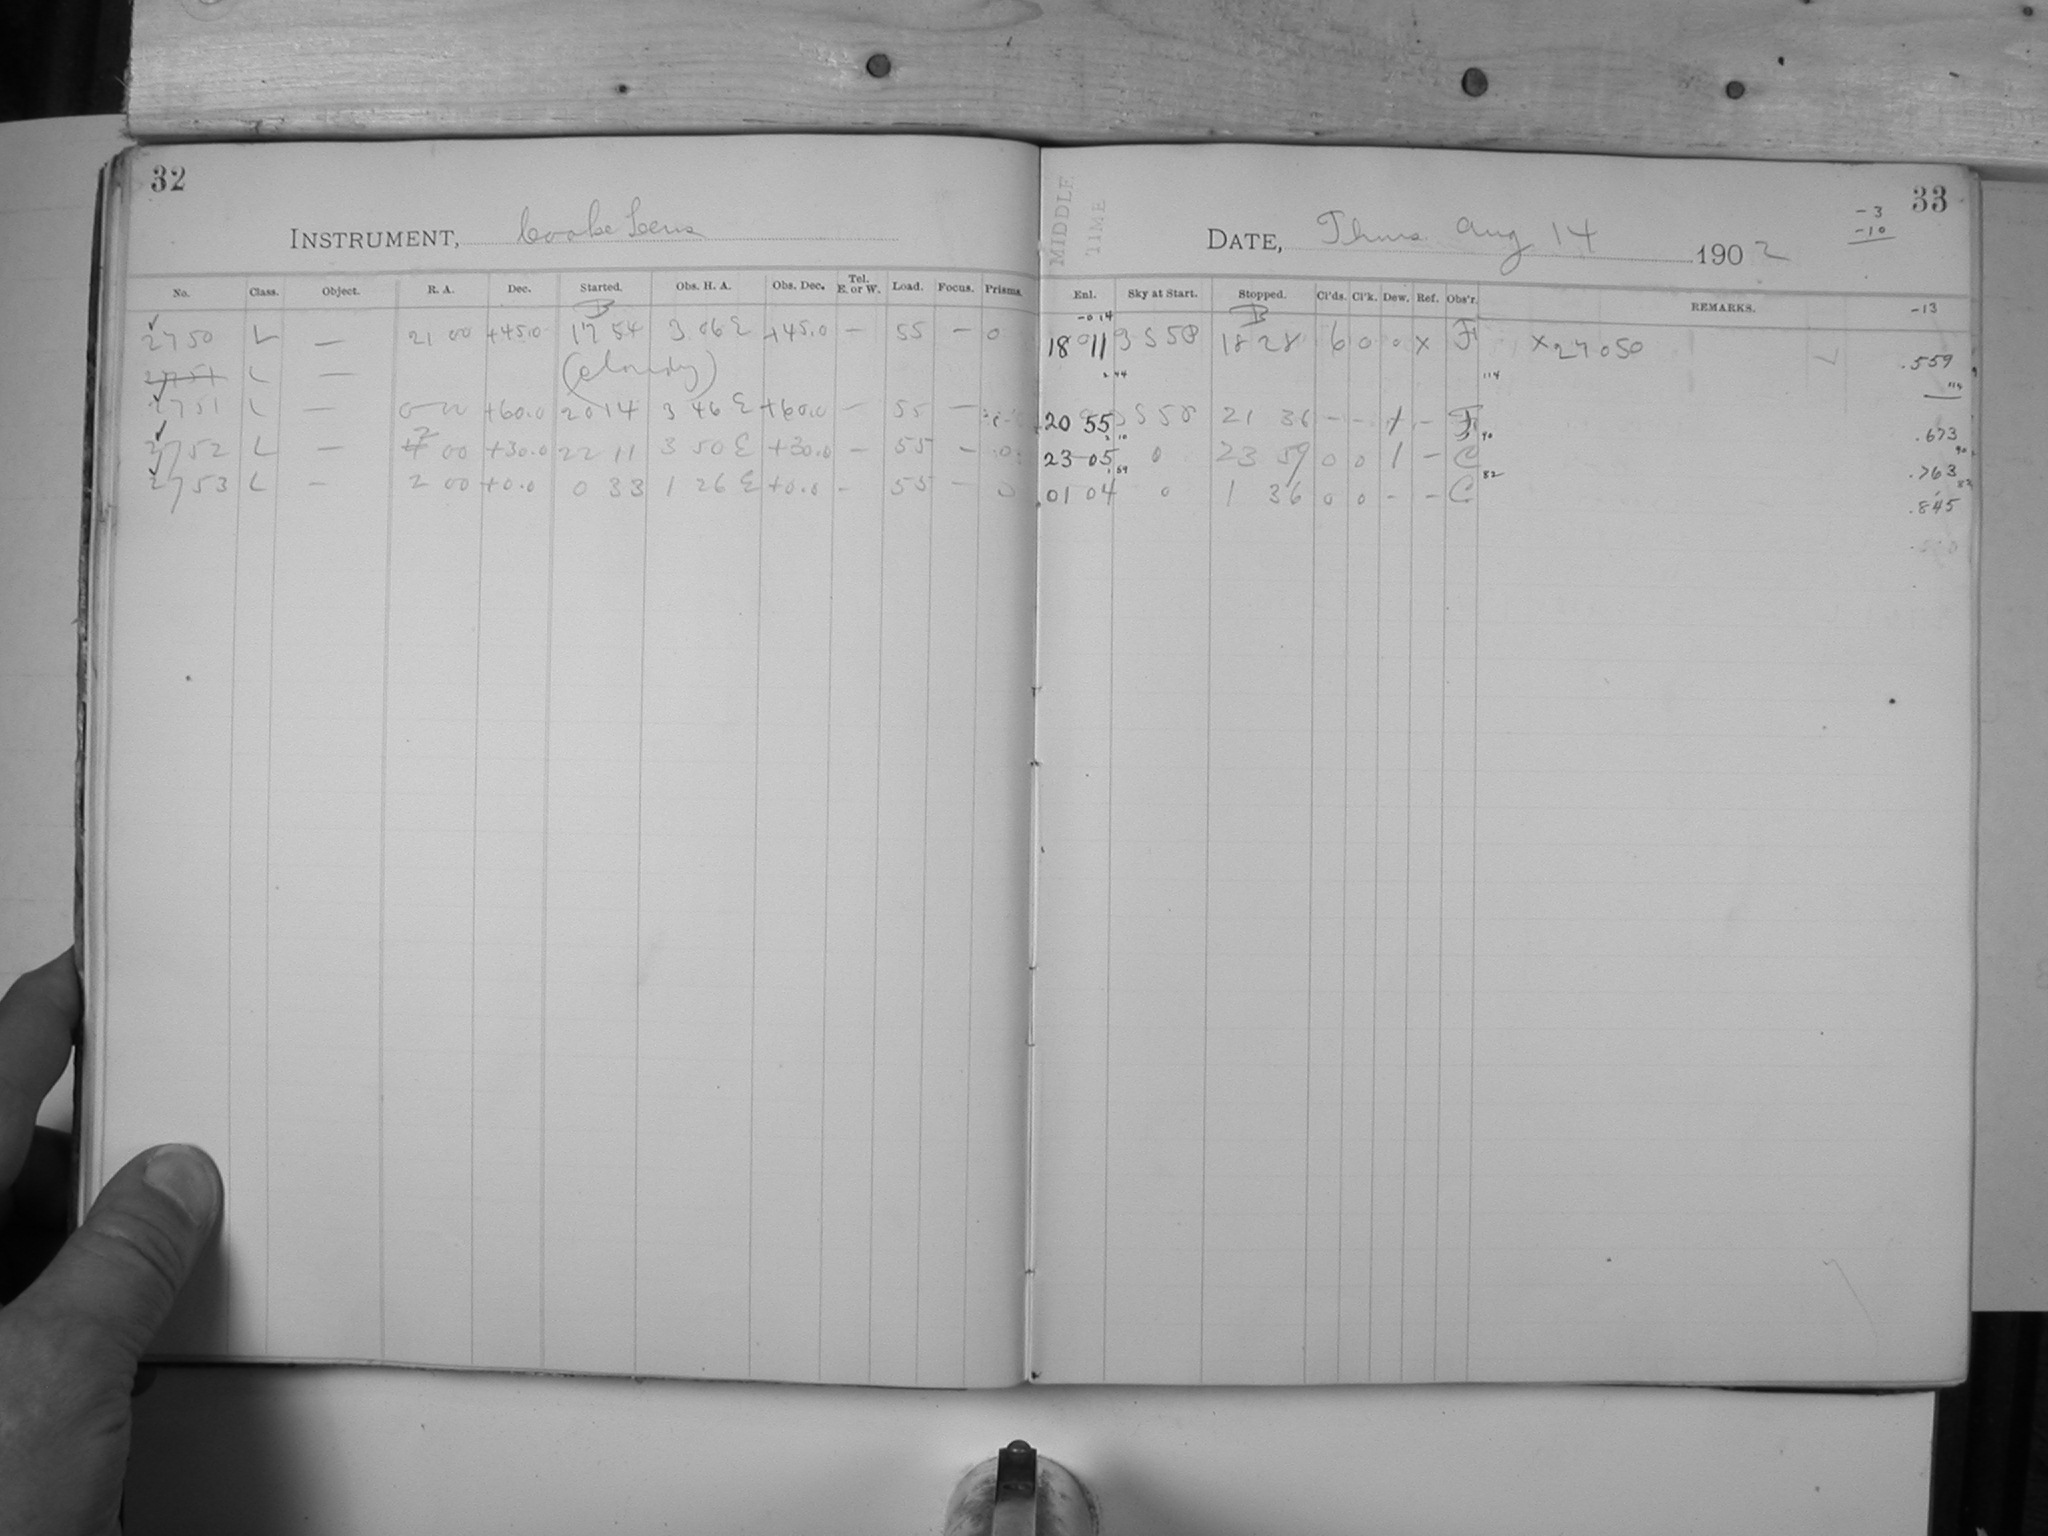 32
INSTRUMENT, Cooke Lens
No. Class. Object. R. A. Dec. Started. Obs. H. A. Obs. Dec. Tel. E. or W. Load. Focus. Prisms.
B
2750 L — 21 00 +45.0 17 54 3 06 E +45.0 — 55 — 0
2751 L — (cloudy)
2751 L — 0 00 +60.0 20 14 3 46 E +60.0 — 55 —
2752 L — 2 00 +30.0 22 11 3 50 E +30.0 — 55 — 0
2753 L — 2 00 +0.0 0 33 1 26 E +0.0 - 55 — 0
33
MIDDLE TIME
DATE, Thurs. Aug 14 1902
-3
-10
-13
Enl. Sky at Start. Stopped. Cl'ds. Cl'k. Dew. Ref. Obs'r. REMARKS.
-0 14 B
18 11 S 5 8 18 28 6 0 0 x F x 27050 .559
2 44 114 114
20 55 S 5 8 21 36 - - 1 - F .673
2 10 90 90
23 05 0 23 59 0 0 1 - C .763
1 59 82 82
01 04 0 1 36 0 0 - - C .845